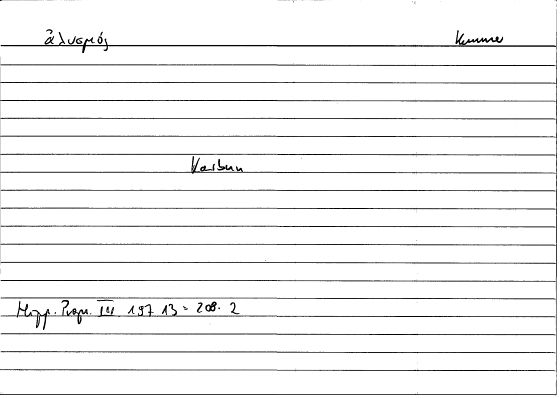 ἀλυσμός Kummer
Hipp. Progn. III 197 13 = 208. 2